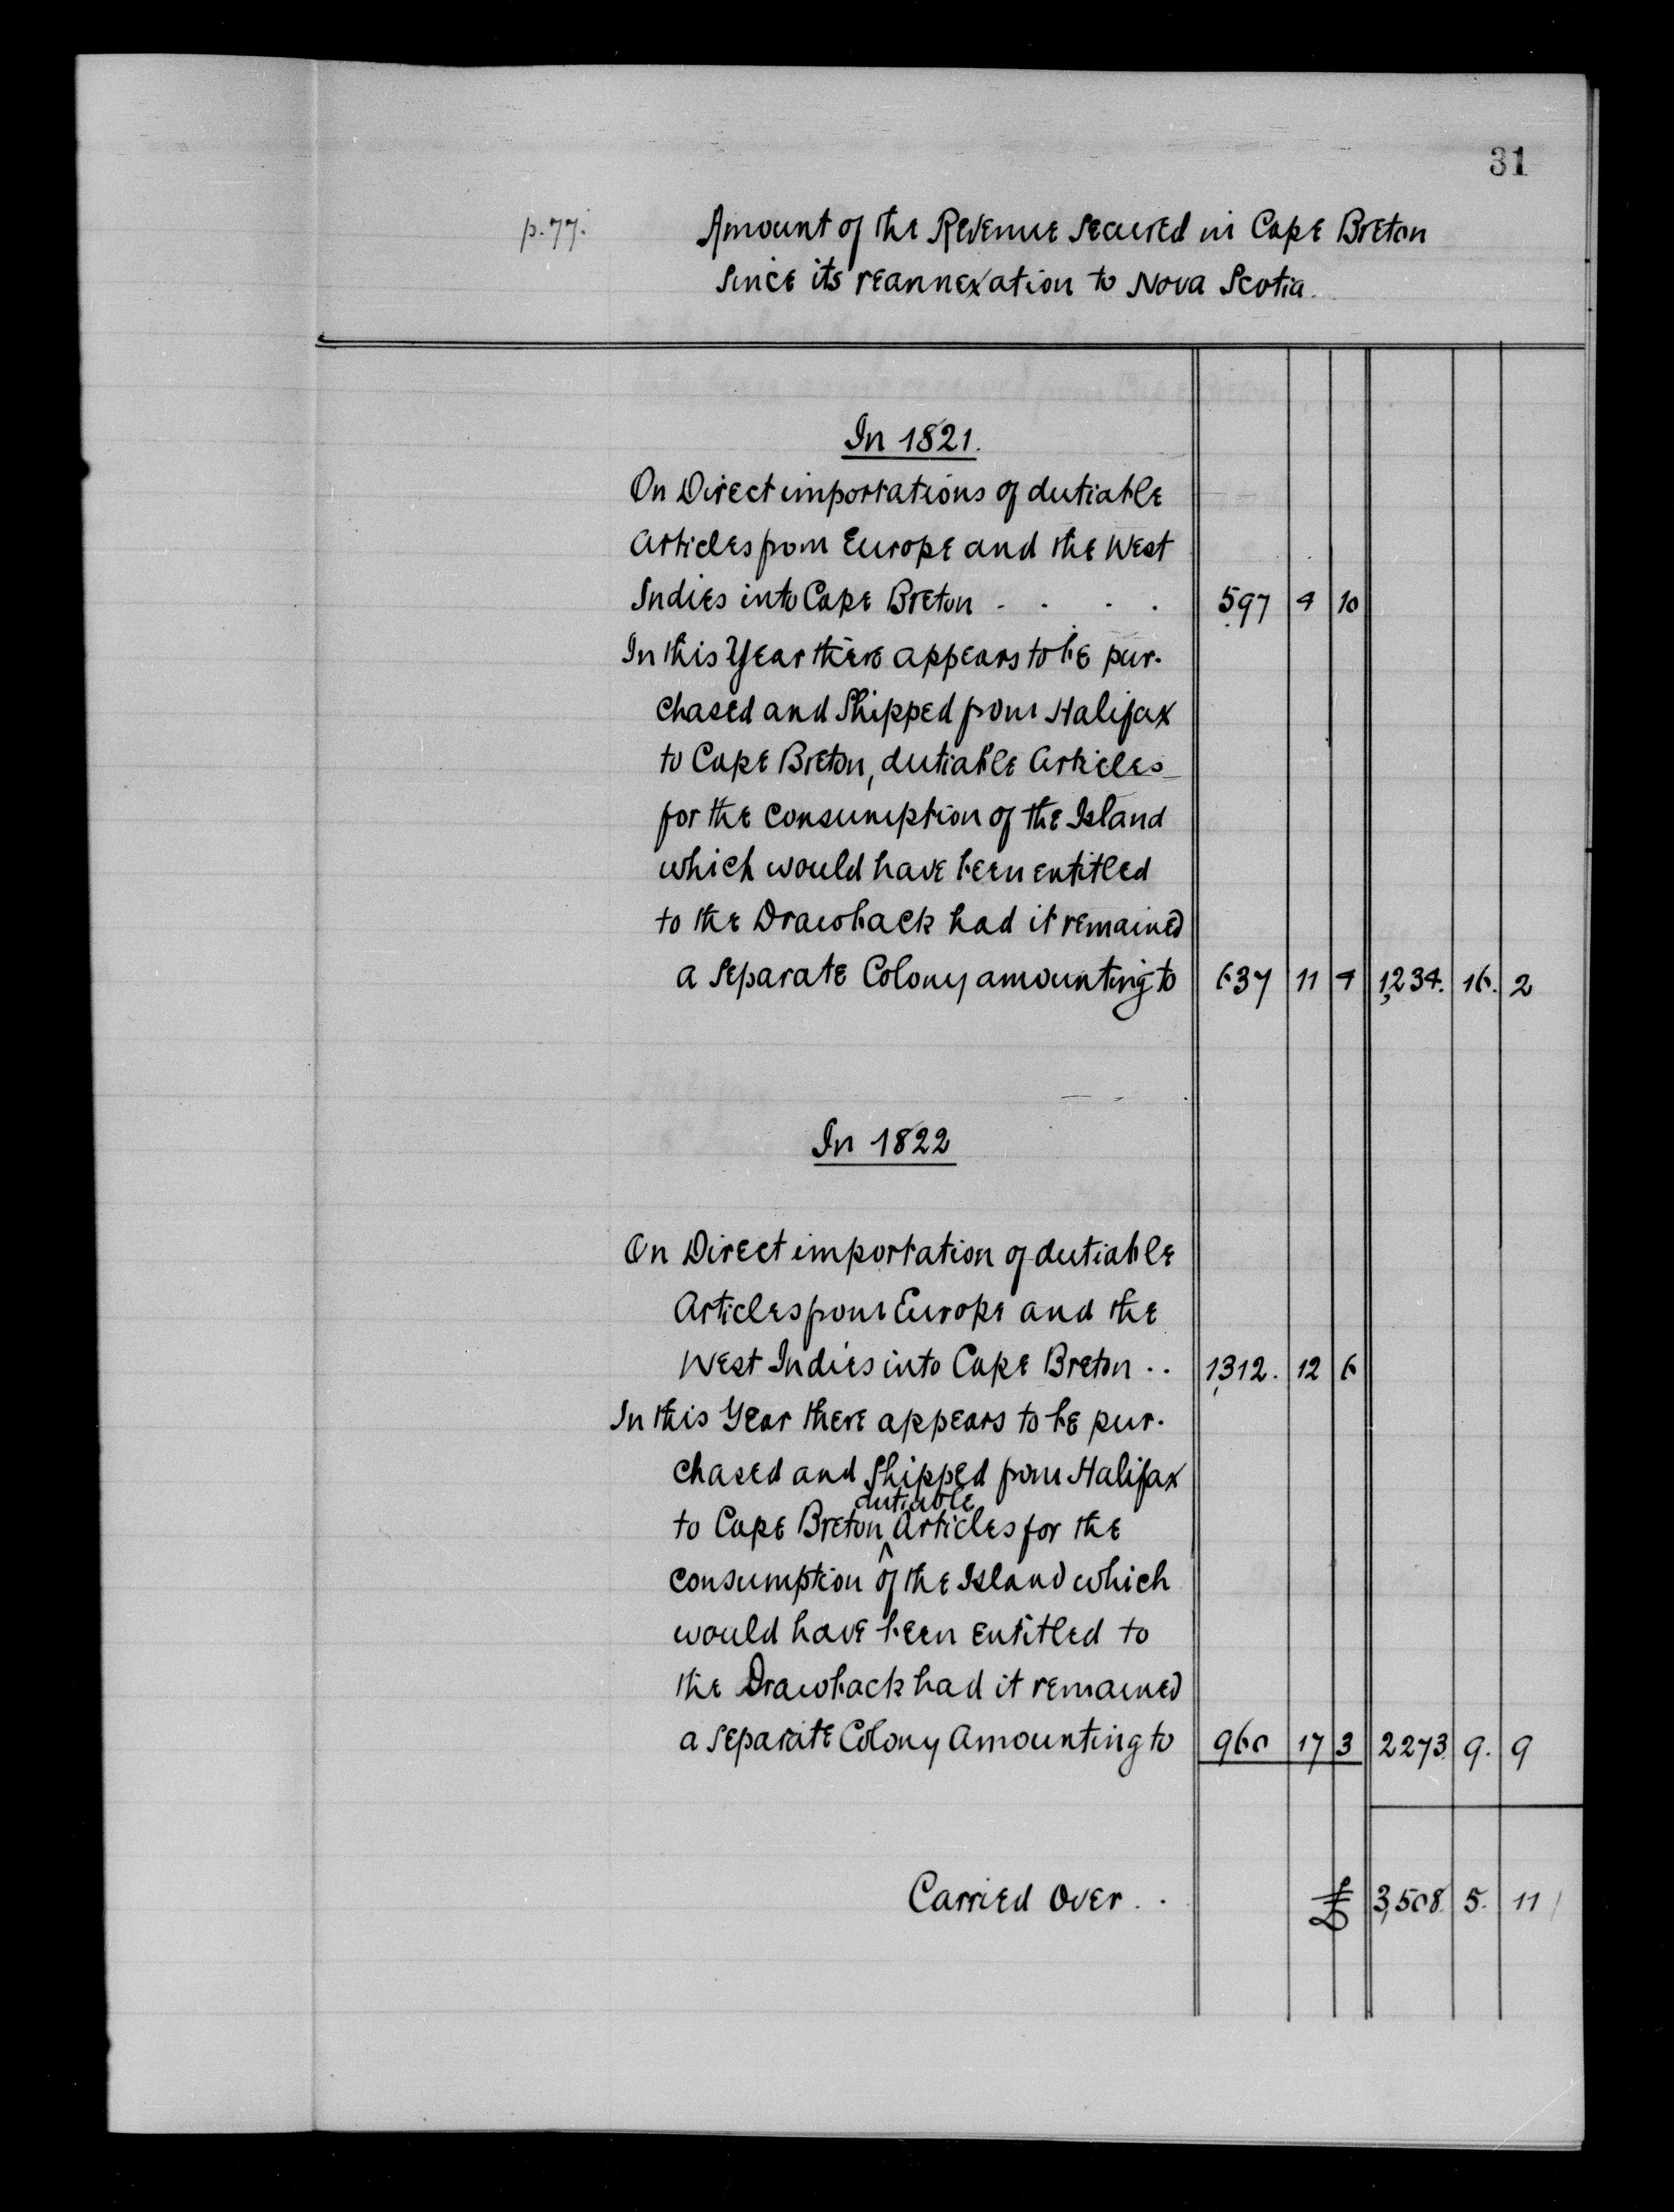 31
p. 77.
Amount of the Revenue secured in Cape Breton
Since its reannexation to Nova Scotia.
In 1821.
On Direct importations of dutiable
Articles from Europe and the West
Indies into Cape Breton - . . . 597 4 10
In this Year there appears to be pur-
chased and Shipped from Halifax
to Cape Breton, dutiable Articles
for the consumption of the Island
which would have been entitled
to the Drawback had it remained
a Separate Colony amounting to 637 11 4 1,234. 16. 2
In 1822
On Direct importation of dutiable
Articles from Europe and the
West Indies into Cape Breton .. 1,312. 12 6
In this Year there appears to be pur-
chased and Shipped from Halifax
dutiable
to Cape Breton ^ Articles for the
consumption of the Island which
would have been entitled to
the Drawback had it remained
a separate Colony Amounting to 960 17 3 2273. 9. 9
Carried Over . . £ 3,508. 5. 11